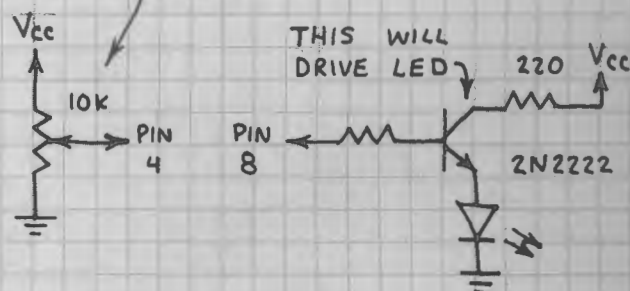 Vcc
10K
PIN
4
THIS WILL
DRIVE LED
PIN
8
220
Vcc
2N2222